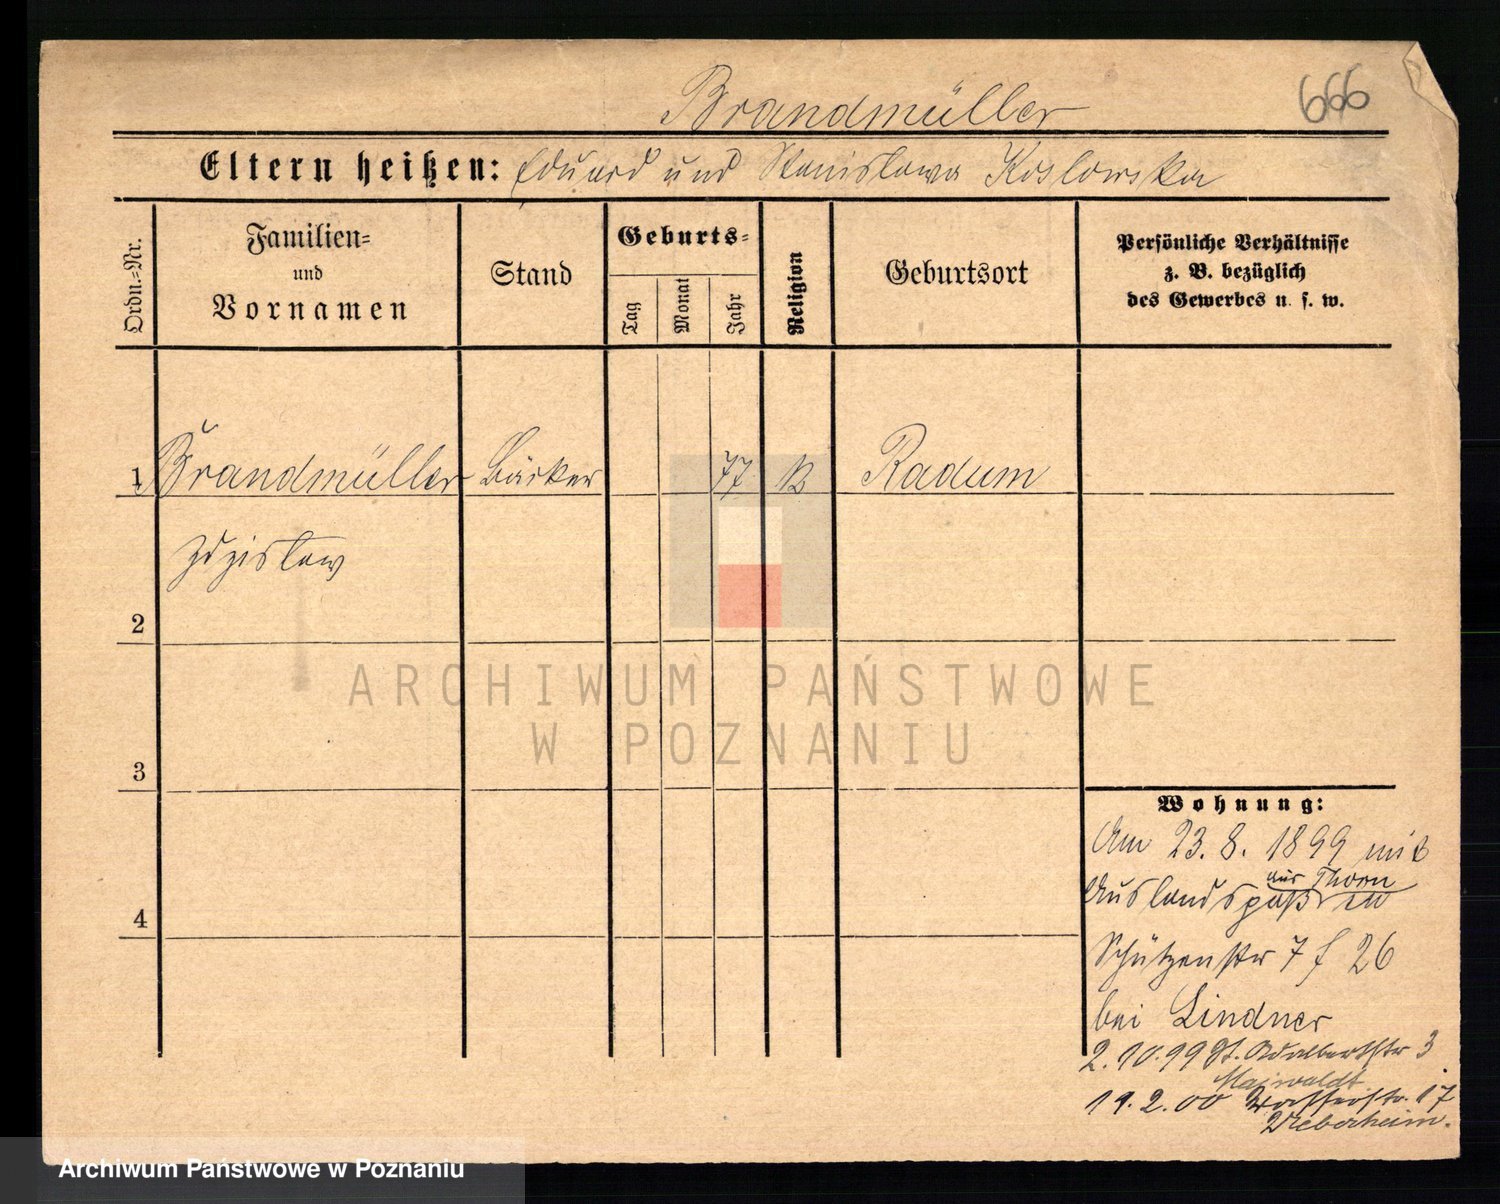 Brandmüller
666
Eltern heißen: Eduard und Stanislawa Koslowska
Ordn.=Nr.
Familien=
und
Vornamen
Stand
Geburts=
Tag
Monat
Jahr
Religion
Geburtsort
Persönliche Verhältnisse
z. B. bezüglich
des Gewerbes u. s. w.
1 Brandmüller Bäcker 77 Radum
Zdzislaw
2
3
4
ARCHIWUM PAŃSTWOWE
W POZNANIU
Wohnung:
Am 23. 8. 1899 mit
aus Thorn
Auslandspaß in
Schützenstr 7 f 26
bei Lindner
2.10.99 St. Adalbertstr 3
Maiwaldt
19.2.00 Wasserstr. 17
Archiwum Państwowe w Poznaniu